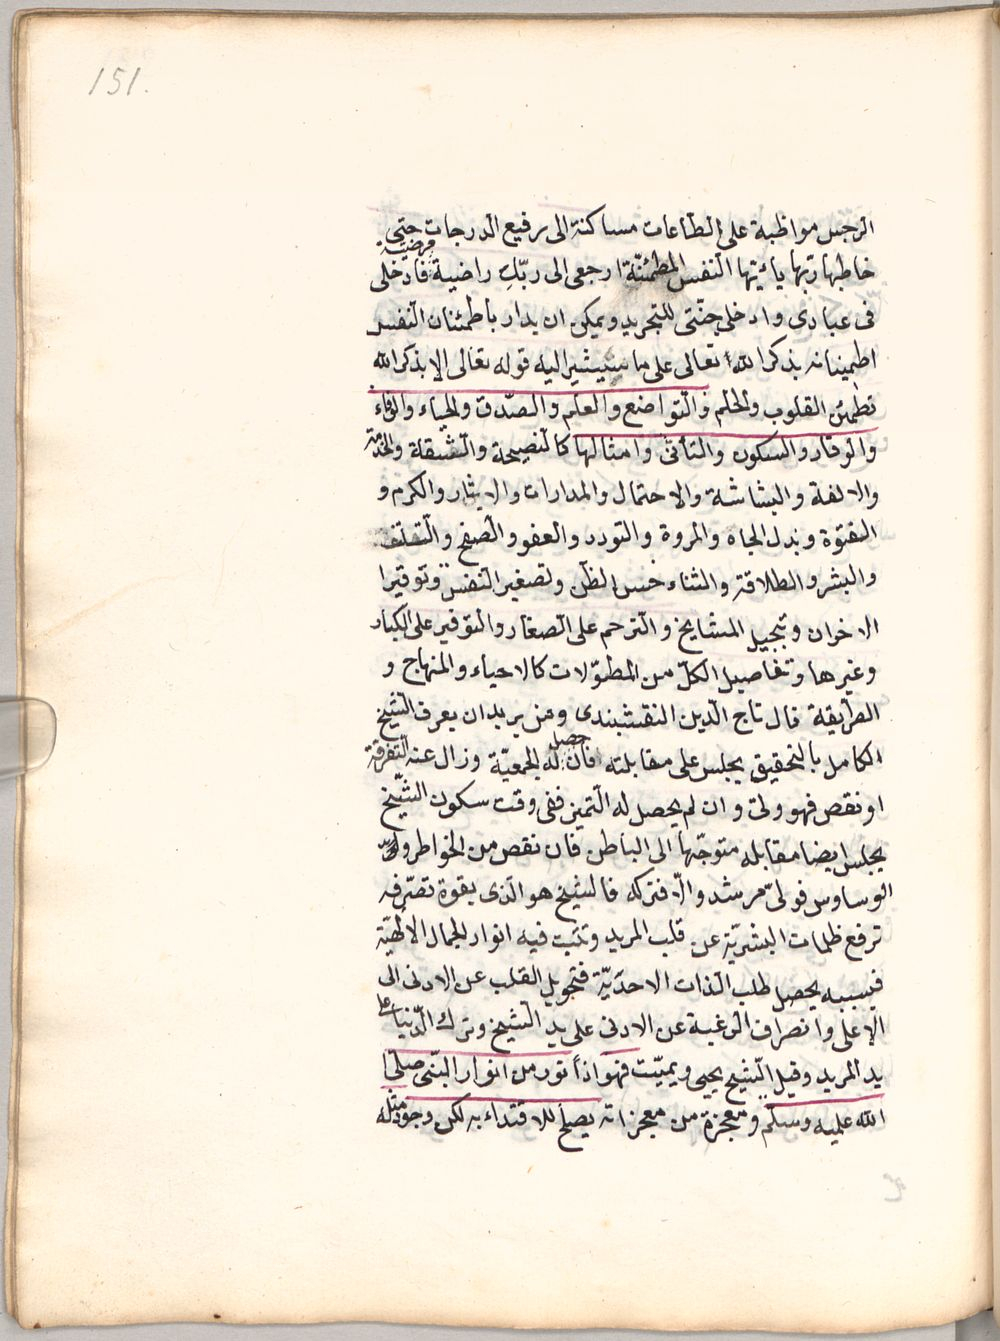 151.
الرجس مواظبة على الطاعات مساكنة الى رفيع الدرجات حتى
خاطبها ربّها يا ايّتها النفس المطمئنّة ارجعى الى ربّك راضية مرضيّة فادخلى
فى عبادى وادخلى جنّتى للتجريد ويمكن ان يدار باطمئنان النفس
اطمينانه بذكر الله تعالى على ما سيشير اليه قوله تعالى الا بذكر الله
تطمئن القلوب والحلم والتواضع والعلم والصّدق والحياء والوفاء
والوقار والسكون والتأنّى وامثالها كالنصيحة والشفقة
والالفة والبشاشة والاحتمال والمدارات والايثار والكرم و
الفتوّة وبذل الجاه والمروة والتودد والعفو والصفح
والبشر والطلاقة والثناء حسن الظنّ وتصغير النفس وتوقير
الاخوان وتبجيل المشايخ والترحم على الصغار والتوقير على الكبار
وغيرها وتفاصيل الكلّ من المطوّلات كالاحياء والمنهاج و
الطريقة قال تاج الدين النقشبندى ومن يريد ان يعرف الشيخ
الكامل بالتحقيق يجلس على مقابلته فان حصل له الجمعيّة وزال عنه التفرقة
او نقص فهو ولىّ وان لم يحصل له التميز ففى وقت سكون الشيخ
يجلس ايضا مقابله متوجّها الى الباطن فان نقص من الخواطر و
الوساوس فولىّ مرشد والّا فتركه فالشيخ هو الذى بقوة تصرّفه
ترفع ظلمات البشريّة عن قلب المريد وتثبت فيه انوار الجمال الالهيّة
فبسببه يحصل طلب الذات الاحديّة فتحويل القلب عن الادنى الى
الاعلى وانصراف الرغبة عن الادنى على يد الشيخ وترك الدّنيا على
يد المريد وقيل الشيخ يحيى ويميت فهو اذا نور من انوار النّبى صلى
الله عليه وسلّم ومعجزة من معجزاته يصلح للاقتداء به لكن وجود مثله